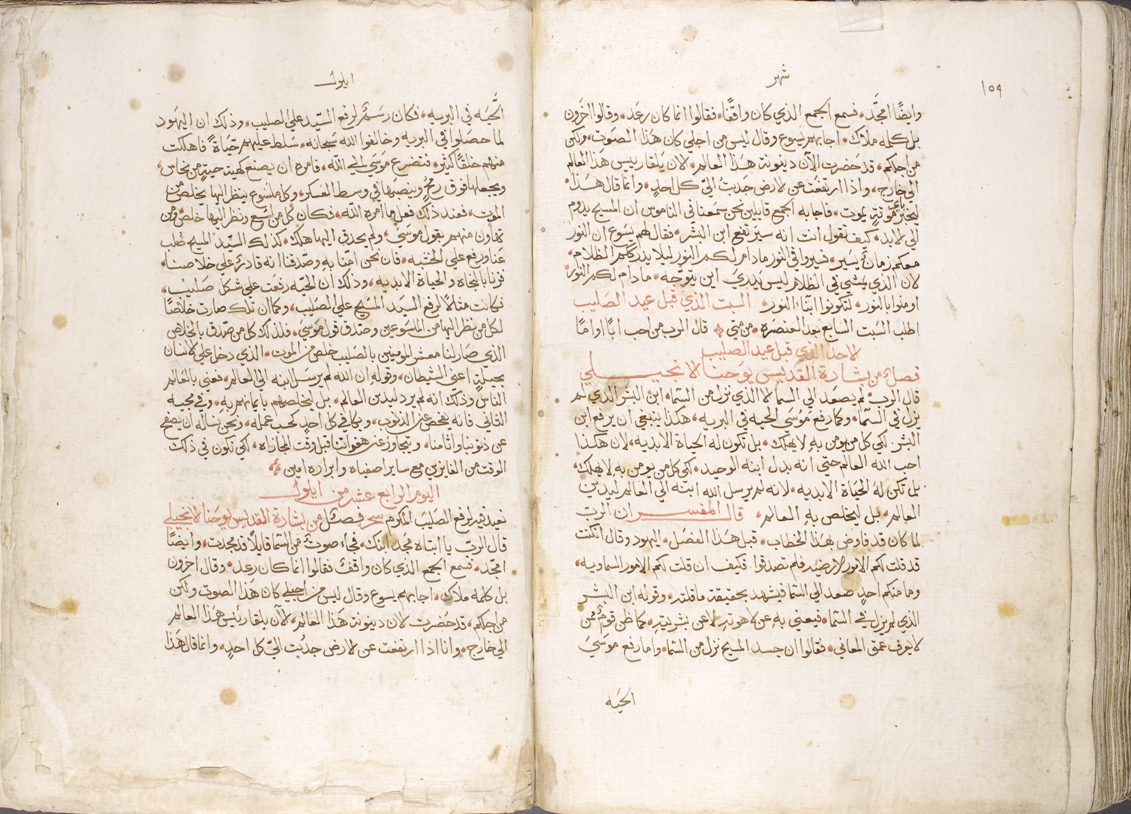 ١٥٩
شهر
وايضًا امجّد. فسمع الجمع الذي كان واقفًا. فقالوا انما كان رعد. وقالوا اخرون
بل كلمه ملاك. اجابهم يسوع وقال ليس من اجلي كان هذا الصوت. ولكن
من اجلكم. قد حضرت الآن دينونة هذا العالم. لان يلقا رييس هذا العالم
الي خارج. وانا اذا ارتفعت عن لارض جدبت اليّ كل احدٍ. وانما قال هذا.
ليخبر باية موتةٍ يموت. فاجابه الجمع قايلين نحن سمعنا في الناموس ان المسيح يدوم
الي لابد. كيف تقول انت انه سيرتفع ابن البشر. فقال لهم يسوع ان النور
معكم زمان يسير. فسيروا في النور مادام لكم النور ليلا يدرككم الظلام.
لان الذي يمشي في الظلام ليس يدري اين يتوجّه. مادام لكم النور
اومنوا بالنور. لتكونوا ابنا النور. السبت الذي قبل عيد الصليب
اطلب السبت السابع بعد العنصره. من متي قال الرب من احب ابًا او امًا
لاحد الذي قبل عيد الصليب
فصل من بشارة القديس يوحنا الانجيلي
قال الرب لم يصعد الي السما لا الذي نزل من السما. ابن البشر الذي لم
يزل في السما. وكما رفع موسي الحيه في البريه. هكذا ينبغي ان يرفع ابن
البشر. لكي كل من يومن به لا يهلك. بل تكون له الحياة الابديه. لان هكذا
احب الله العالم حتي انه بدل ابنه الوحيد. لكي كل من يومن به لا يهلك.
بل تكن له الحياة الابديه. لانه لم يرسل الله ابنه الي العالم ليدين
العالم. بل ليخلص به العالم. قال المفسر ان الرب
لما كان قد فاوض هذا الخطاب. قبل هذا الفصل. اليهود وقال ان كنت
قد قلت لكم الامور الارضيه فلم تصدقوا فكيف ان قلت لكم الامور السماويه.
وما منكم احدٍ صعد الي السما فيشهد بحقيقة ما قلته. وقوله ابن البشر
الذي لم يزل في السما. فيعني به عن لاهوته لا عن بشريته. كما ظن قومٌ ممن
لا يعرف عمق المعاني. فقالوا ان جسد المسيح نزل من السما. واما رفع موسي
الحيه
ايلول
الحيّه في البريه. فكان رسمًا لرفع السيّد علي الصليب. وذلك ان اليهود
لما حصلوا في البريه وخالفوا الله سبحانه. سلط عليهم حيّاةً فاهلكت
منهم خلقًا كثير. فتضرع موسي الي الله. فامره ان يصنع كهية حيةٍ من نحاس.
ويجعلها فوق رمحٍ وينصبها في وسط العسكر. وكل ملسوع ينظر اليها يخلص من
الموت. فعند ذلك فعل ما امره الله. فكان كل من لسع ونظر اليها خلص. ومن
تهاون منهم بقول موسي. ولم يحدق اليها هلك. كذلك السيد المسيح صلب
عنا ورفع علي الخشبه. فان نحن امنا به وصدقنا انه قادر علي خلاصنا.
فزنا بالنجاه والحياة الابديه. وذلك ان الحيّه رفعت علي شكل صليب.
فكانت مثالاً لرفع السيد المسيح علي الصليب. وكما ان تلك صارت خلاصًا
لكل من نظر اليها من الملسوعين وصدق قول موسي. فلذلك كل من صدق بالخلاص
الذي صار لنا معشر المومنين بالصليب خلص من الموت. الذي دخل علي الانسان
بحيلةٍ اعني الشيطان. وقوله ان الله لم يرسل ابنه الي العالم. فعني بالعالم
الناس وذلك انه لم يرد ليدين العالم. بل ليخلصهم بايمانهم به. وفي مجيه
الثاني فانه يفحص عن الذنوب. ويكافي كل احدٍ كحسب عمله. ونحن نساله ان يصفح
عن ذنوبنا واثامنا. ويتجاوز عن هفواتنا قبل وقت المجازاه. لكي نكون في ذلك
الوقت من الفايزين مع ساير اصفياه وابراره امين
اليوم الرابع عشر من ايلول
نعيد فيه لرفع الصليب المكرم سحر فصل من بشارة القديس يوحنا الانجيلي
قال الرب يا ابتاه مجد ابنك. فجا صوت من السما قايلاً قد مجدت. وايضًا
امجد. فسمع الجمع الذي كان واقفًا فقالوا انما كان رعد. وقال اخرون
بل كلمه ملاك. اجابهم يسوع وقال ليس من اجلي كان هذا الصوت ولكن
من اجلكم. قد حضرت لان دينونة هذا العالم. لآن يلقا رييس هذا العالم
الي خارج. وانا اذا ارتفعت عن لارض جدبت اليّ كل احدٍ. وانما قال هذا